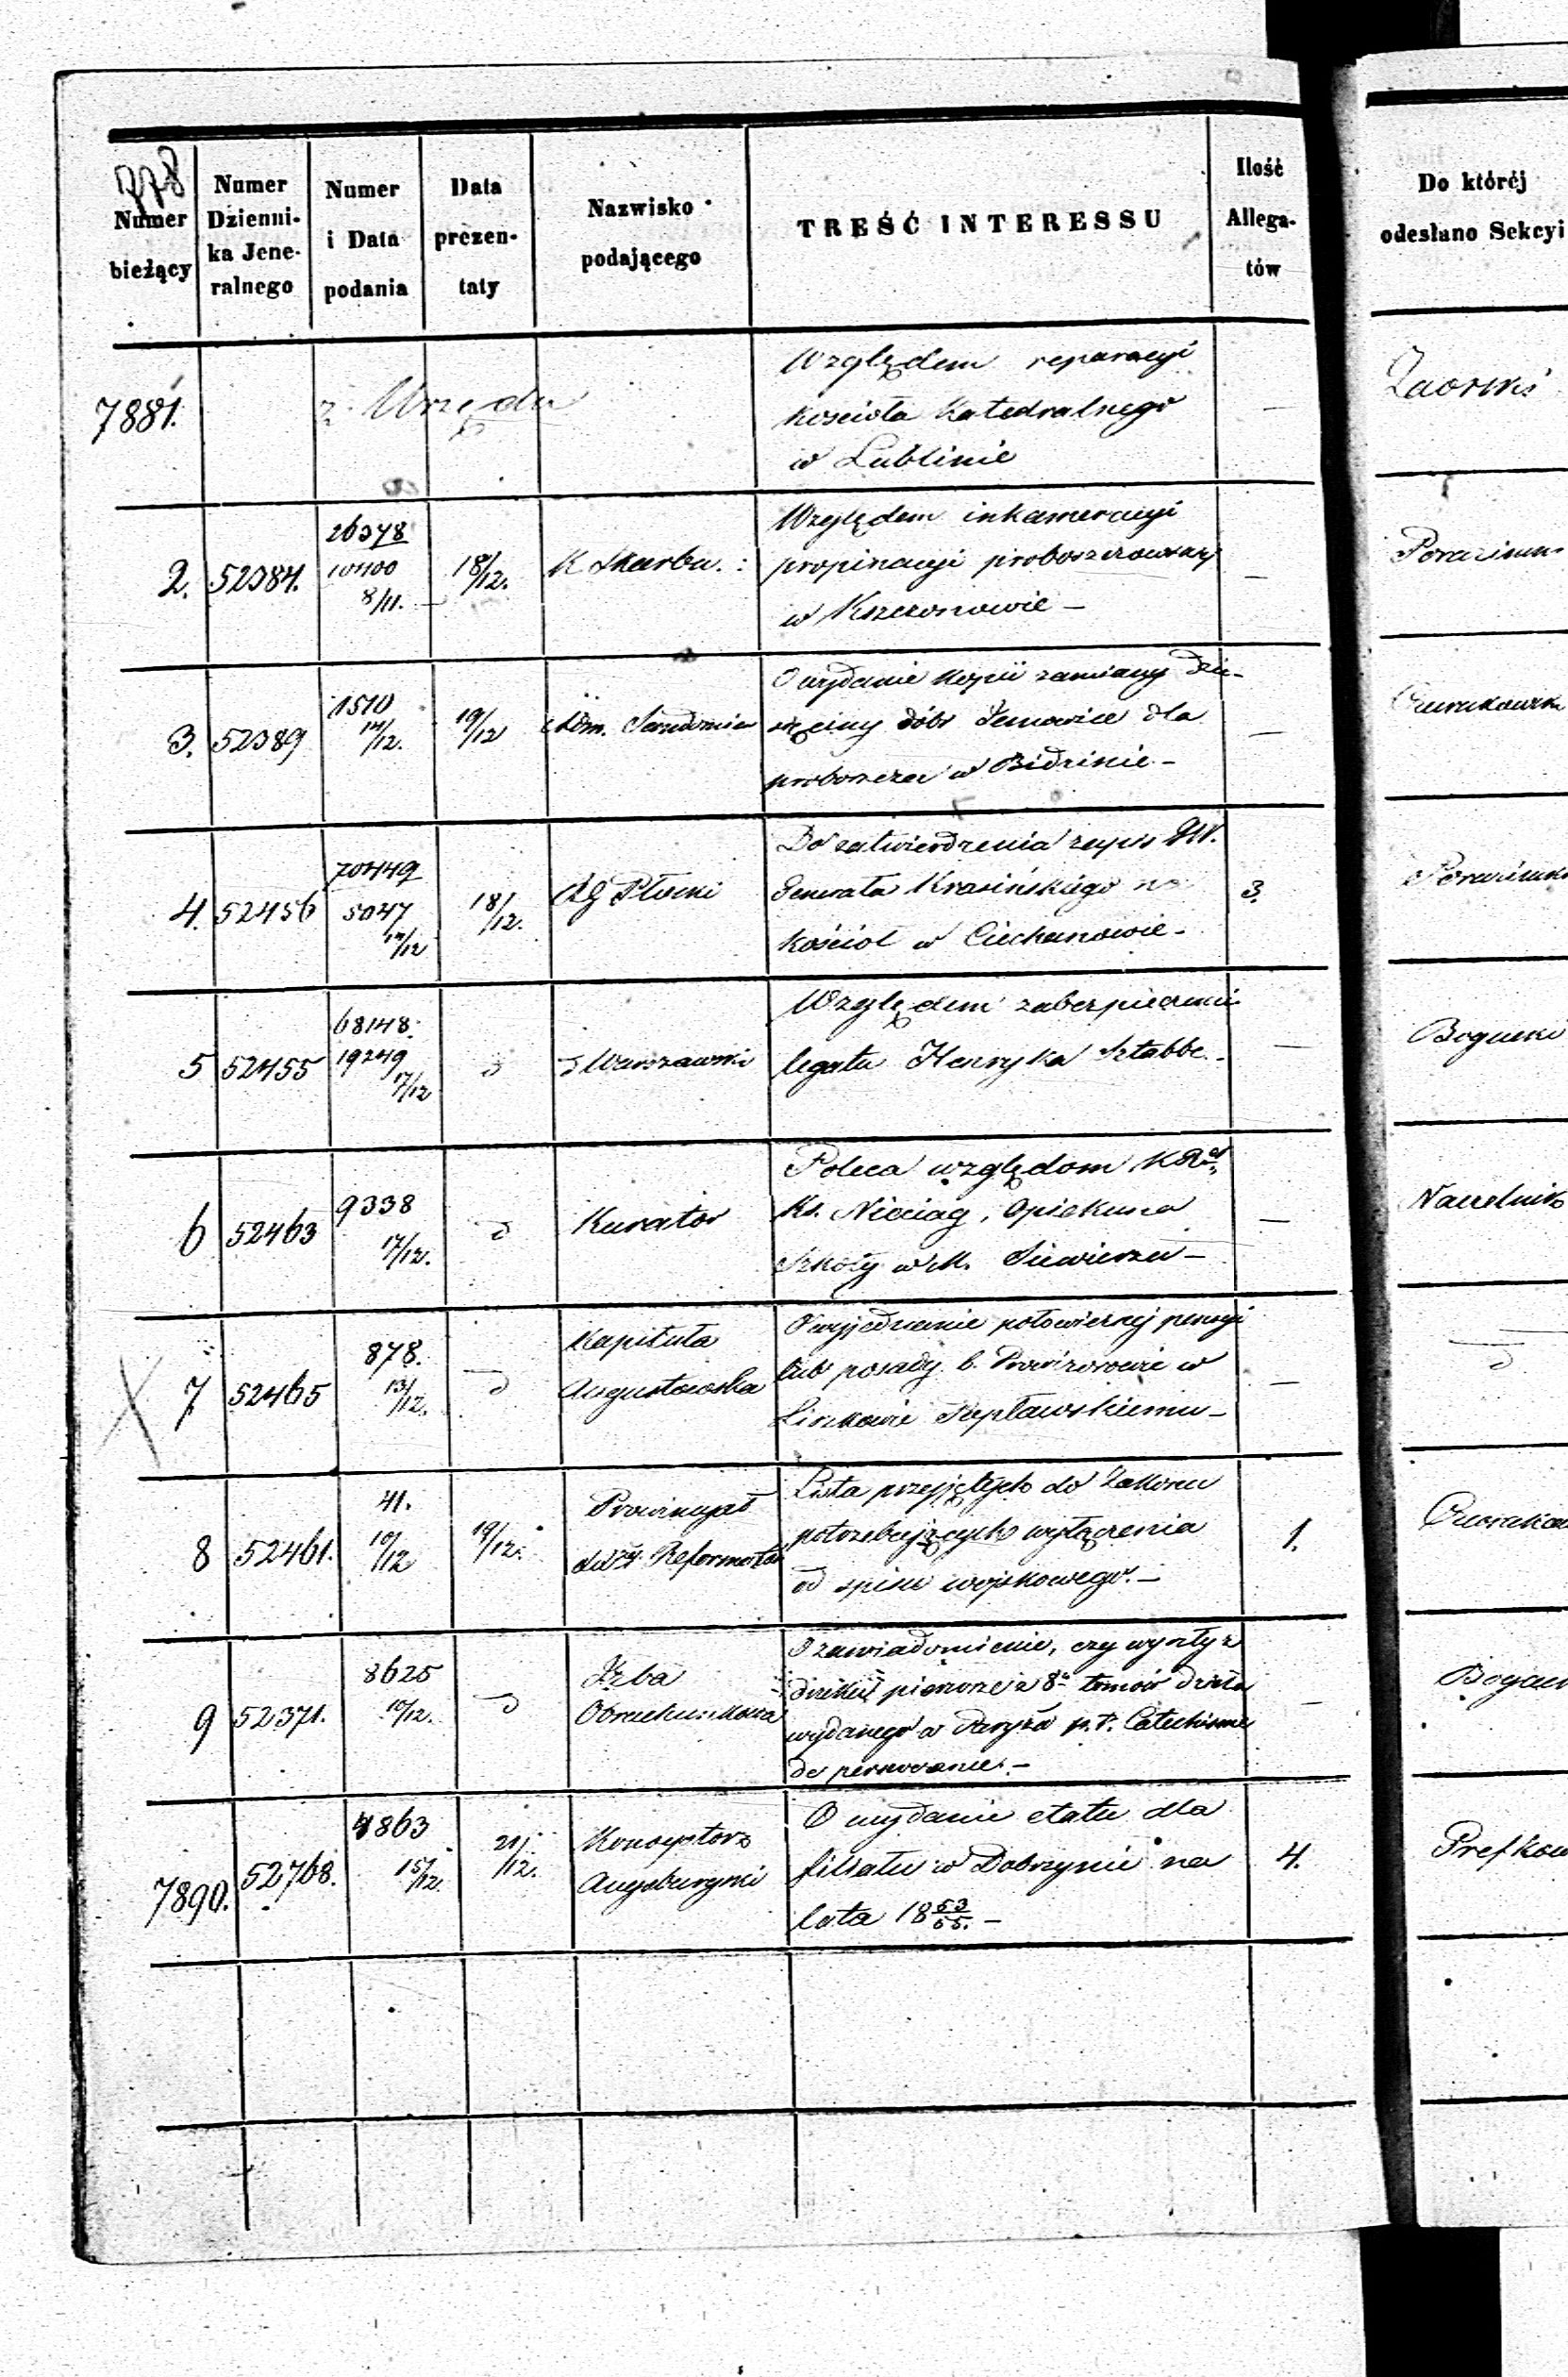 778
Numer
bieżący
Numer
Dzienni-
ka Jene-
ralnego
Numer
i Data
podania
Data
prezen-
taty
Nazwisko
podającego
TREŚĆ INTERESSU
Ilość
Allega-
tów
Do któréj
odesłano Sekcyi
7881.
z Urzędu
Względem reparacyi
kościoła Katedralnego
w Lublinie
—
2.
52384.
26378
10400
8/11.
18/12.
K. Skarbu.
Względem inkameracyi
propinacyi
w
—
3.
52389
1510
14/12.
19/12
Adm.
O wydanie kopii zamiany dzie-
sięciny dóbr dla
proboszcza w Bidzinie —
—
4.
52456
70449
5047
14/12
18/12.
RG Płocki
Do zatwierdzenia zapis JW.
Generała Krasińskiego na
kościół w Ciechanowie —
3.
5
52455
68148.
19249
17/12
d
d Warszawski
Względem zabezpieczenia
legatu Henryka
—
6
52463
9338
17/12.
d
Kurator
Poleca względom KR
Ks. Opiekuna
Szkoły w M. Siewierzu —
—
Naczelnik
7
52465
878.
13/12.
d
Kapituła
Augustowska
O wyjednanie połowicznej pensyi
lub posady b. w
—
d
8
52461.
41.
10/12
19/12.
Prowincyał
Reformatów
Lista przyjętych do Zakonu
potrzebujących wyłączenia
od spisu wojskowego. —
1.
9
52371.
8625
10/12.
d
Izba
Obrachunkowa
O zawiadomienie, czy wyszły z
pierwsze z 8 tomów dzieła
wydanego w Paryżu p. t. Catechisme
de perseverance. —
—
7890.
52768.
4863
15/12.
21/12.
Konsystorz
Augsburgski
O wydanie etatu dla
filiału w Dobrzyniu na
lata 18 53/55. —
4.